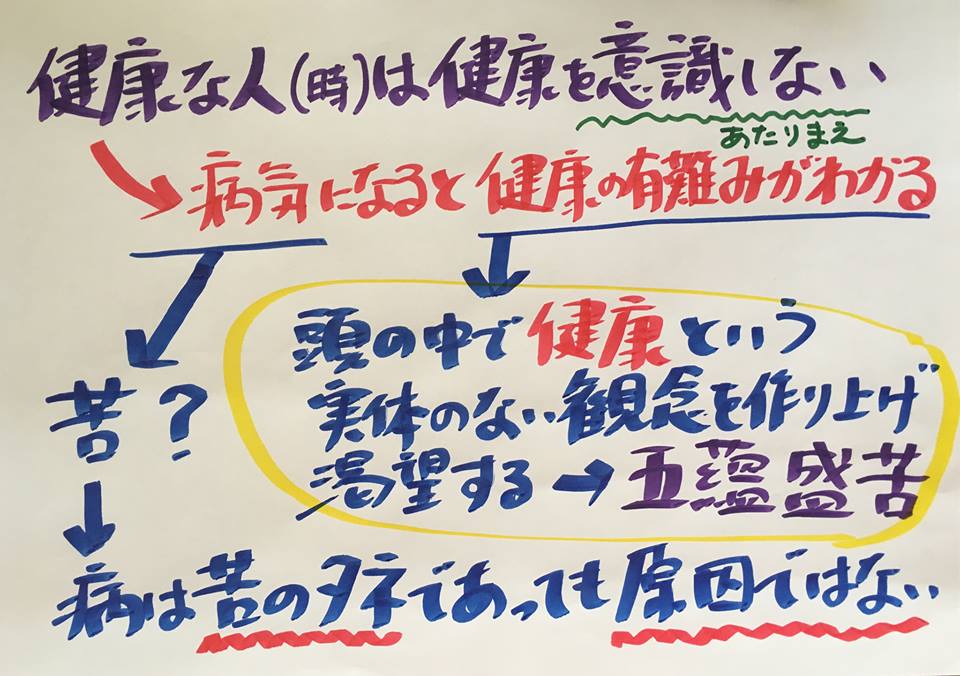 健康な人(時)は健康を意識しない
あたりまえ
病気になると健康の有難みがわかる
頭の中で健康という
実体のない観念を作り上げ
渇望する→五蘊盛苦
苦?
病は苦のタネであっても原因ではない